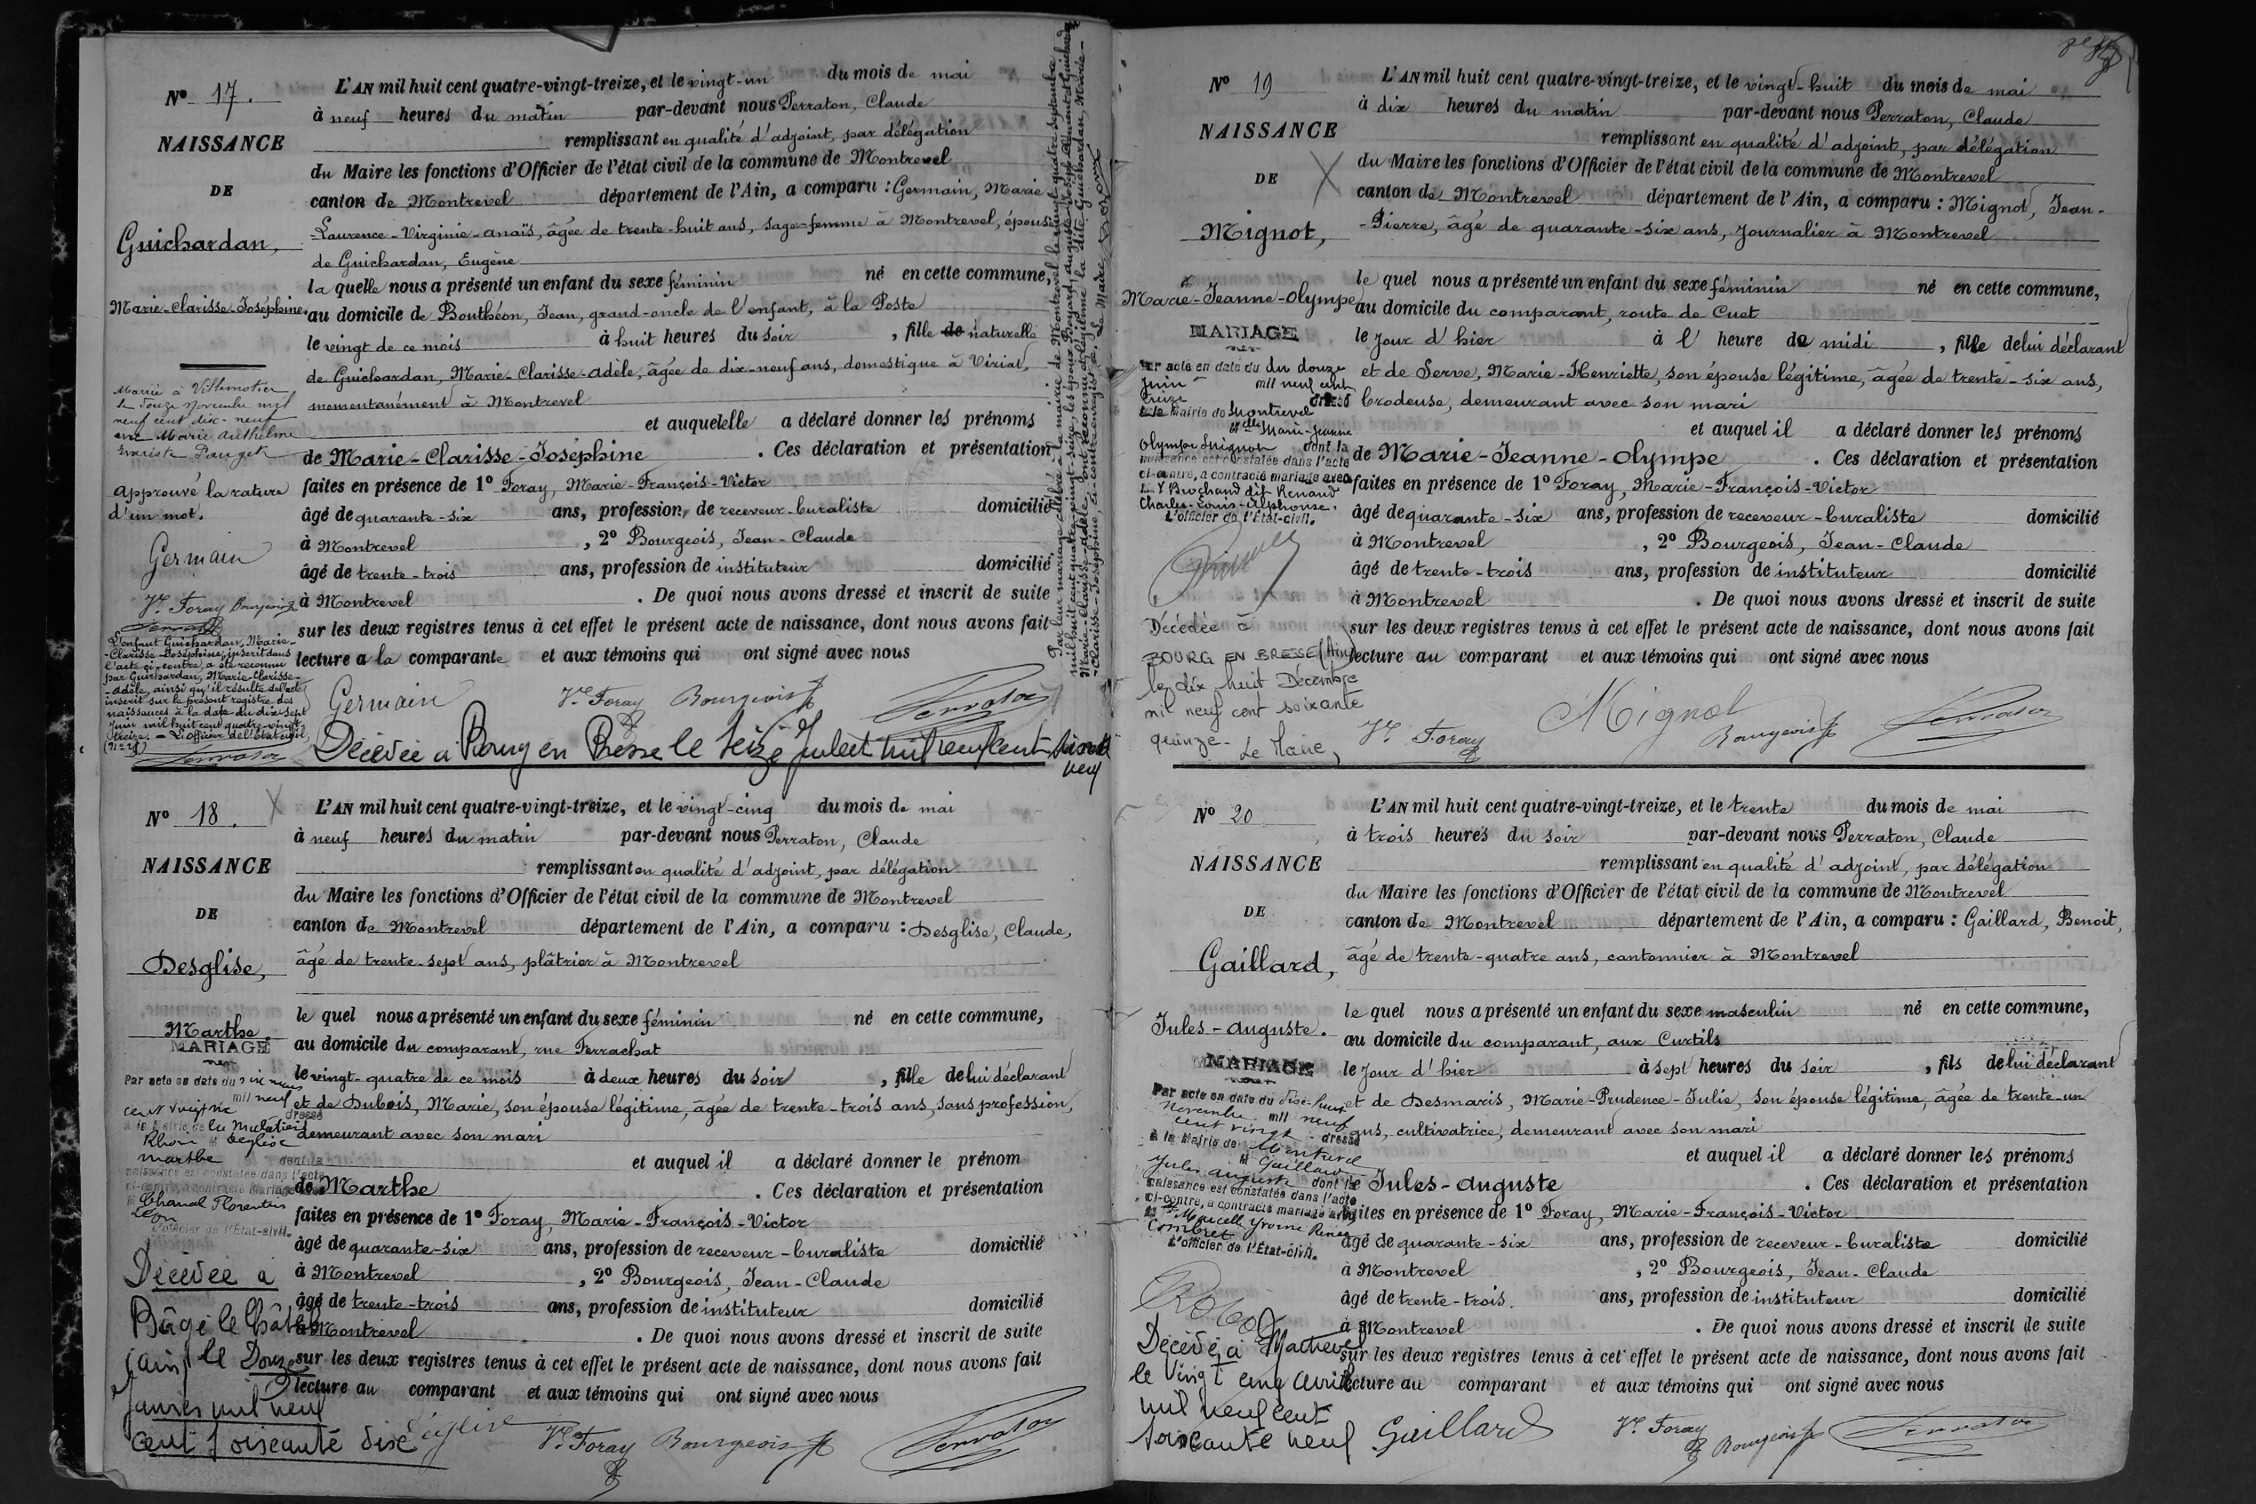 Nº 17.
NAISSANCE
DE
Guichardan,
Marie-Clarisse-Joséphine.
Mariée à Villemotier
le douze novembre mil
neuf cent dix-neuf
avec Marie Anthelme
Evariste Pauget
Approuvé la rature
d'un mot.
Germain
Vr Foray Bourgeois
Perraton
L'enfant Guichardan, Marie-
-Clarisse-Joséphine, inscrit dans
l'acte ci-contre, a été reconnu
par Guichardan, Marie-Clarisse-
-Adèle, ainsi qu'il résulte de l'acte
inscrit sur le présent registre des
naissances à la date du dix-sept
juin mil huit cent quatre-vingt-
treize. - L'officier de l'Etat civil,
Perraton
L'AN mil huit cent quatre-vingt-treize, et le vingt-un du mois de mai
à neuf heures du matin par-devant nous Perraton, Claude
remplissant en qualité d'adjoint, par délégation
du Maire les fonctions d'Officier de l'état civil de la commune de Montrevel
canton de Montrevel département de l'Ain, a comparu : Germain, Marie-
-Laurence-Virginie-Anaïs, âgée de trente-huit ans, sage-femme à Montrevel, épouse
de Guichardan, Eugène
la quelle nous a présenté un enfant du sexe féminin né en cette commune,
au domicile de Bouthéon, Jean, grand-oncle de l'enfant, à la Poste
le vingt de ce mois à huit heures du soir, fille de naturelle
de Guichardan, Marie-Clarisse-Adèle, âgée de dix-neuf ans, domestique à Viriat,
momentanément à Montrevel
et auquelelle a déclaré donner les prénoms
de Marie-Clarisse-Joséphine. Ces déclaration et présentation
faites en présence de 1º Foray, Marie-François-Victor
âgé de quarante-six ans, profession de receveur-buraliste domicilié
à Montrevel, 2º Bourgeois, Jean-Claude
âgé de trente-trois ans, profession de instituteur domicilié
à Montrevel. De quoi nous avons dressé et inscrit de suite
sur les deux registres tenus à cet effet le présent acte de naissance, dont nous avons fait
lecture a la comparante et aux témoins qui ont signé avec nous
Germain Vr Foray Bourgeois Perraton
Décédée à Bourg en Bresse le seize Juillet mil neuf cent soixante
neuf
Par leur mariage célébré à la mairie de Montrevel le
mil huit cent quatre-vingt-seize, les époux
Marie-Clarisse-Adèle, ont reconnu et légitimé la dite Guichardan, Marie-
-Clarisse-Joséphine, ci-contre inscrite. Le Maire,
Nº 18.
NAISSANCE
DE
Desglise,
Marthe
MARIAGE
Par acte en date du six mars
mil neuf
cent vingt dressé
à la Mairie de la Mulatière
Rhône M Desglise
Marthe dont la
naissance est constatée dans l'acte
ci-contre, a contracté mariage avec
Chanal Florentin
Léon
L'officier de l'État-civil.
Décédée à
Bâgé le Châtel
(ain) le Douze
Janvier mil neuf
cent soixante dix
L'AN mil huit cent quatre-vingt-treize, et le vingt-cinq du mois de mai
à neuf heures du matin par-devant nous Perraton, Claude
remplissant en qualité d'adjoint, par délégation
du Maire les fonctions d'Officier de l'état civil de la commune de Montrevel
canton de Montrevel département de l'Ain, a comparu : Desglise, Claude,
âgé de trente-sept ans, plâtrier à Montrevel
le quel nous a présenté un enfant du sexe féminin né en cette commune,
au domicile du comparant, rue Ferrachat
le vingt-quatre de ce mois à deux heures du soir, fille de lui déclarant
et de Dubois, Marie, son épouse légitime, âgée de trente-trois ans, sans profession,
demeurant avec son mari
et auquel il a déclaré donner le prénom
de Marthe. Ces déclaration et présentation
faites en présence de 1º Foray, Marie-François-Victor
âgé de quarante-six ans, profession de receveur-buraliste domicilié
à Montrevel, 2º Bourgeois, Jean-Claude
âgé de trente-trois ans, profession de instituteur domicilié
à Montrevel. De quoi nous avons dressé et inscrit de suite
sur les deux registres tenus à cet effet le présent acte de naissance, dont nous avons fait
lecture au comparant et aux témoins qui ont signé avec nous
Déglise Vr Foray Bourgeois Perraton
Nº 19
NAISSANCE
DE
Mignot,
Marie-Jeanne-Olympe
MARIAGE
Par acte en date du douze
juin mil neuf cent
treize dressé
à la Mairie de Montrevel
Melle Marie-Jeanne
Olympe Mignot dont la
naissance est constatée dans l'acte
ci-contre, a contracté mariage avec
Mr Brochand dit Renaud
Charles-Louis-Alphonse.
L'officier de l'État-civil.
Décédée à
BOURG EN BRESSE (Ain)
le dix huit Décembre
mil neuf cent soixante
quinze.
Le Maire,
L'AN mil huit cent quatre-vingt-treize, et le vingt-huit du mois de mai
à dix heures du matin par-devant nous Perraton, Claude
remplissant en qualité d'adjoint, par délégation
du Maire les fonctions d'Officier de l'état civil de la commune de Montrevel
canton de Montrevel département de l'Ain, a comparu : Mignot, Jean-
-Pierre, âgé de quarante-six ans, journalier à Montrevel
le quel nous a présenté un enfant du sexe féminin né en cette commune,
au domicile du comparant, route de Cuet
le jour d'hier à l'heure de midi, fille de lui déclarant
et de Serve, Marie-Henriette, son épouse légitime, âgée de trente-six ans,
brodeuse, demeurant avec son mari
et auquel il a déclaré donner les prénoms
de Marie-Jeanne-Olympe. Ces déclaration et présentation
faites en présence de 1º Foray, Marie-François-Victor
âgé de quarante-six ans, profession de receveur-buraliste domicilié
à Montrevel, 2º Bourgeois, Jean-Claude
âgé de trente-trois ans, profession de instituteur domicilié
à Montrevel. De quoi nous avons dressé et inscrit de suite
sur les deux registres tenus à cet effet le présent acte de naissance, dont nous avons fait
lecture au comparant et aux témoins qui ont signé avec nous
Vr Foray Mignot Bourgeois Perraton
Nº 20
NAISSANCE
DE
Gaillard,
Jules-Auguste.
MARIAGE
Par acte en date du dix-huit
novembre mil neuf
cent vingt dressé
à la Mairie de
M Gaillard
Jules Auguste dont la
naissance est constatée dans l'acte
ci-contre, a contracté mariage avec
Marcelle Yvonne Renée
Combret
L'officier de l'État-civil.
Décédé à
le vingt cinq avril
mil neuf cent
soixante neuf
L'AN mil huit cent quatre-vingt-treize, et le trente du mois de mai
à trois heures du soir par-devant nous Perraton, Claude
remplissant en qualité d'adjoint, par délégation
du Maire les fonctions d'Officier de l'état civil de la commune de Montrevel
canton de Montrevel département de l'Ain, a comparu : Gaillard, Benoit,
âgé de trente-quatre ans, cantonnier à Montrevel
le quel nous a présenté un enfant du sexe masculin né en cette commune,
au domicile du comparant, aux Curtils
le jour d'hier à sept heures du soir, fils de lui déclarant
et de Desmaris, Marie-Prudence-Julie, son épouse légitime, âgée de trente-un
ans, cultivatrice, demeurant avec son mari
et auquel il a déclaré donner les prénoms
de Jules-Auguste. Ces déclaration et présentation
faites en présence de 1º Foray, Marie-François-Victor
âgé de quarante-six ans, profession de receveur-buraliste domicilié
à Montrevel, 2º Bourgeois, Jean-Claude
âgé de trente-trois. ans, profession de instituteur domicilié
à Montrevel. De quoi nous avons dressé et inscrit de suite
sur les deux registres tenus à cet effet le présent acte de naissance, dont nous avons fait
lecture au comparant et aux témoins qui ont signé avec nous
Gaillard Vr Foray Bourgeois Perraton